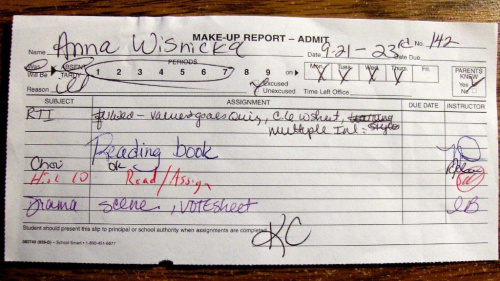 MAKE-UP REPORT – ADMIT
Name Anna Wisnicka Date 9-21 - 23rd No. 142
Date Due
Was ABSENT PERIODS Mon. Tues. Wed. Thurs. Fri. PARENTS KNEW
Will Be TARDY 1 2 3 4 5 6 7 8 9 on Yes
Reason Excused Unexcused Time Left Office No
SUBJECT ASSIGNMENT DUE DATE INSTRUCTOR
RTI - values+goals Quiz,
Multiple Int. - Styles
Reading book
Choir ok
Read/Assign
Drama scene, VOTEsheet
KC
Student should present this slip to principal or school authority when assignments are completed.